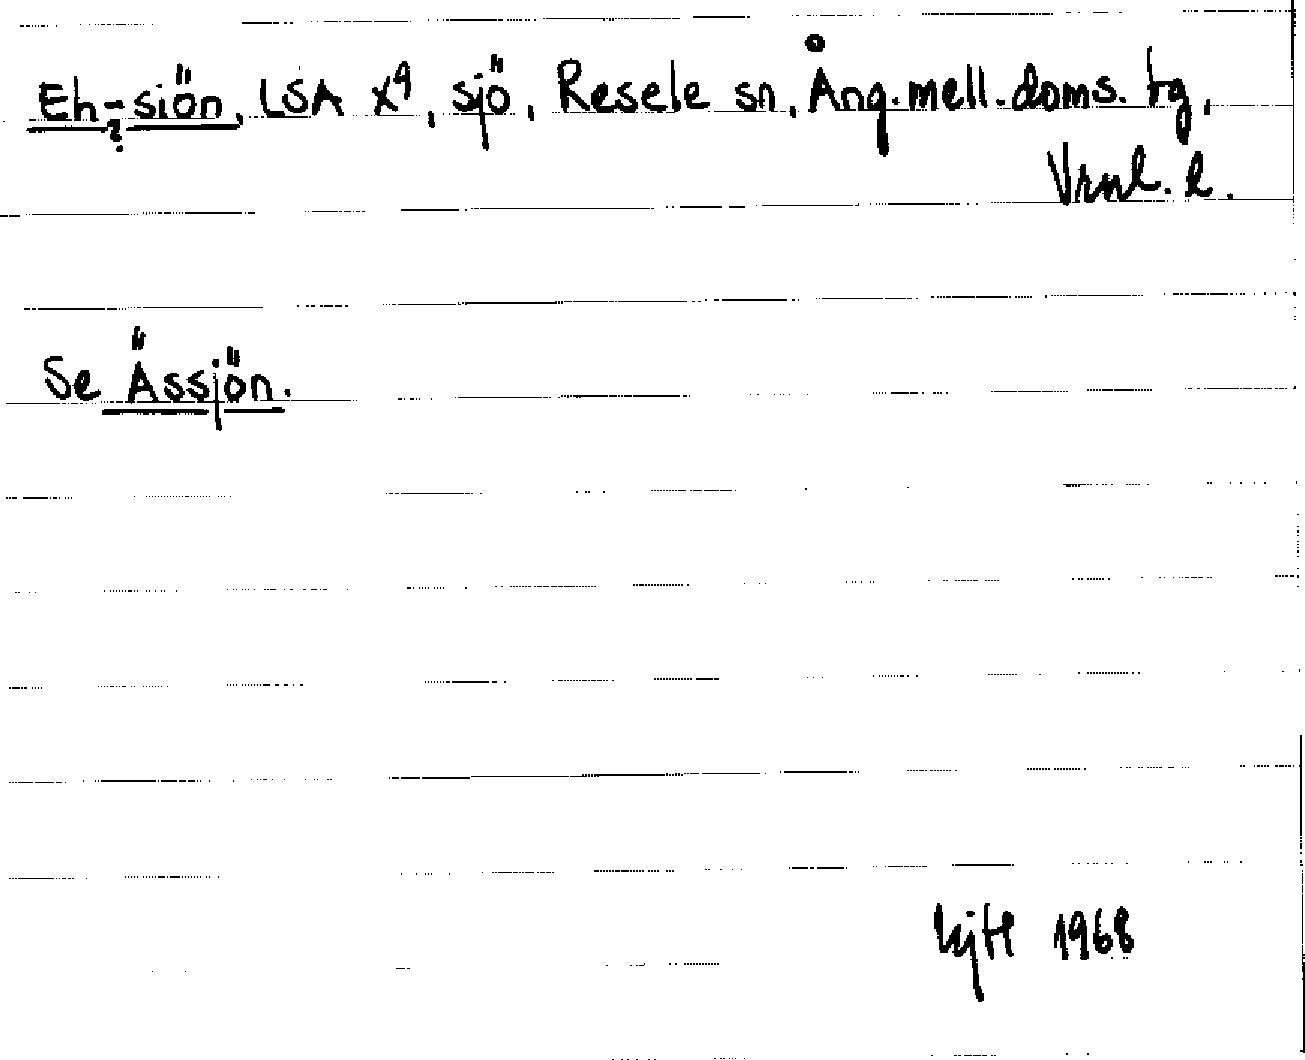 Eh-siön, LSA X9, sjö, Resele sn, Ång.mell.doms. tg,
Vrnl. l.
Se Ässjön.
1968